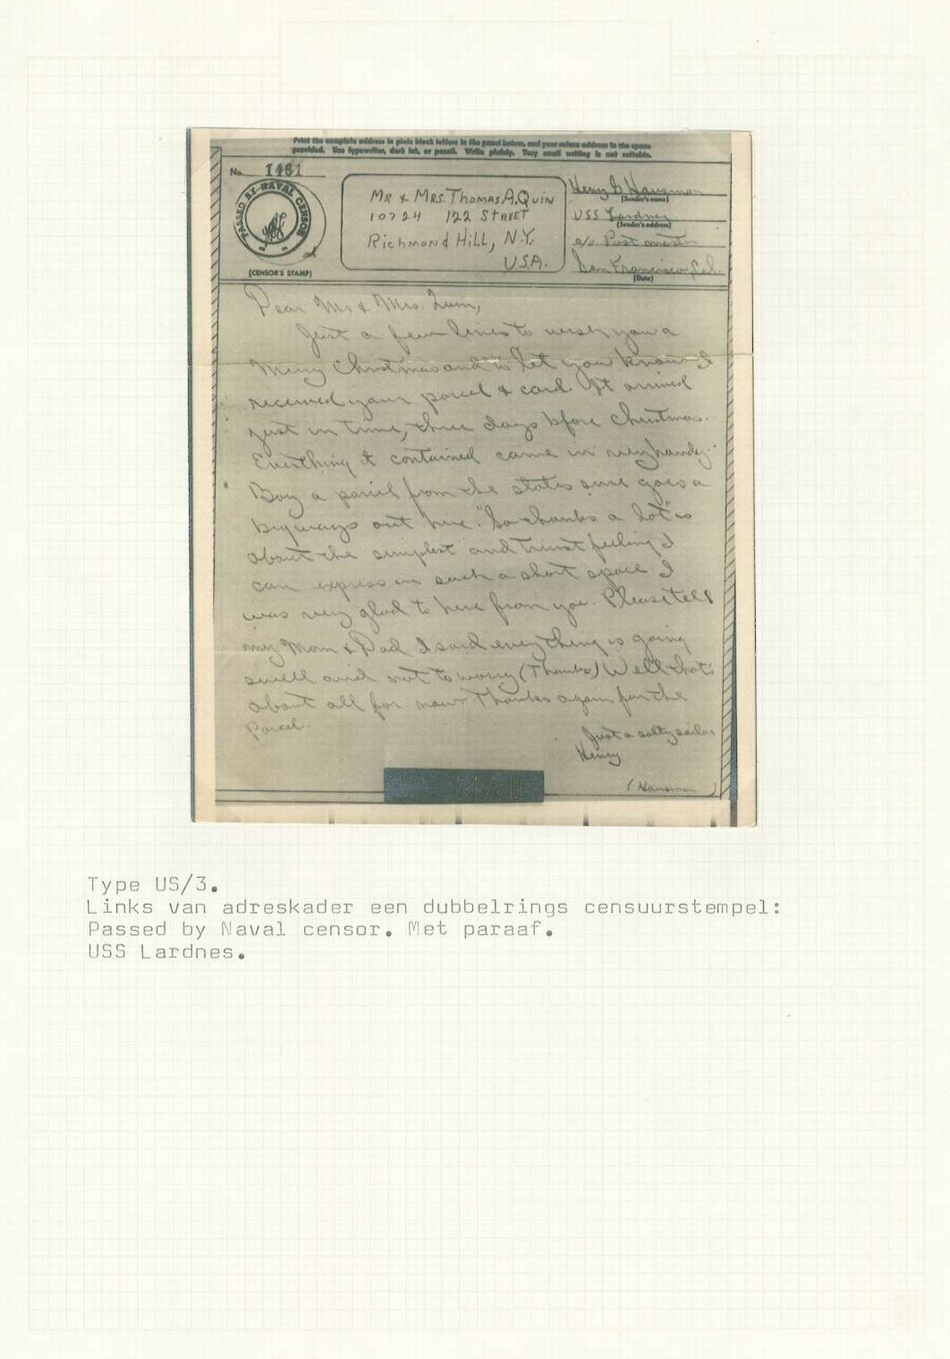 Print the complete address in plain block letters in the panel below, and your return address in the space
provided. Use typewriter, dark ink, or pencil. Write plainly. Very small writing is not suitable.
No. 1461
PASSED BY NAVAL CENSOR
(CENSOR'S STAMP)
MR & MRS. THOMAS A. QUIN
10724 122 STREET
RICHMOND HILL, N.Y.
U.S.A.
Henry G Hausman
(Sender's name)
USS Lardner
(Sender's address)
c/o Post master
San Francisco, Cal.
(Date)
Dear Mr & Mrs. Quin,
Just a few lines to wish you a
Merry Christmas and to let you know I
received your parcel & card. It arrived
just in time, three days before Christmas.
Everthing it contained came in very handy.
Boy a parcel from the states sure goes a
big ways out here. "So thanks a lot" is
about the simplest and truest feeling I
can express in such a short space. I
was very glad to here from you. Please tell
my Mom & Dad I said everything is going
swell and not to worry (Thanks) Well thats
about all for now. Thanks again for the
Parcel.
Just a salty sailor
Henry
(Hausman)
Type US/3.
Links van adreskader een dubbelrings censuurstempel:
Passed by Naval censor. Met paraaf.
USS Lardnes.